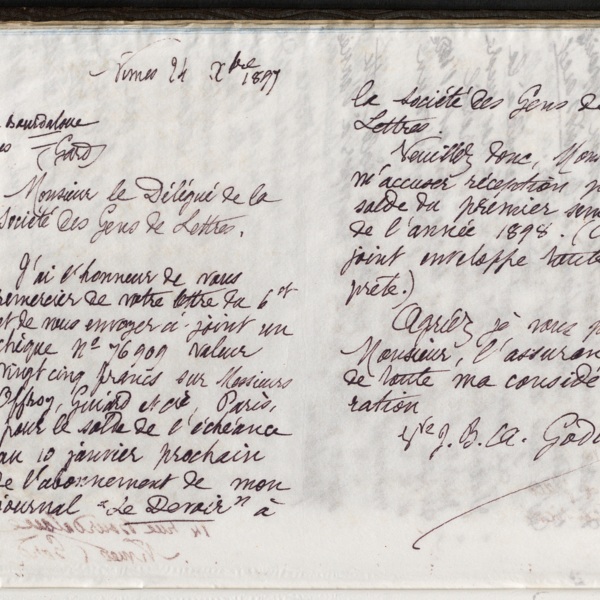 Nimes 24 Xbre 1897
Bourdaloue
(Gard)
Monsieur le Délégué de la
Société des Gens de Lettres,
J'ai l'honneur de vous
remercier de votre lettre du 6 ct
et de vous envoyer ci-joint un
chèque No 76909 valeur
vingt cinq francs sur Messieurs
Offroy, Guiard et Cie, Paris,
pour le solde de l'échéance
au 10 janvier prochain
de l'abonnement de mon
journal "Le Devoir" à
la Société des Gens de
Lettres.
Veuillez donc,
m'accuser réception
solde du premier
de l'année 1898.
joint enveloppe toute
prête.)
Agréez je vous
Monsieur,
de toute ma considé
ration
Vve J. B. A.